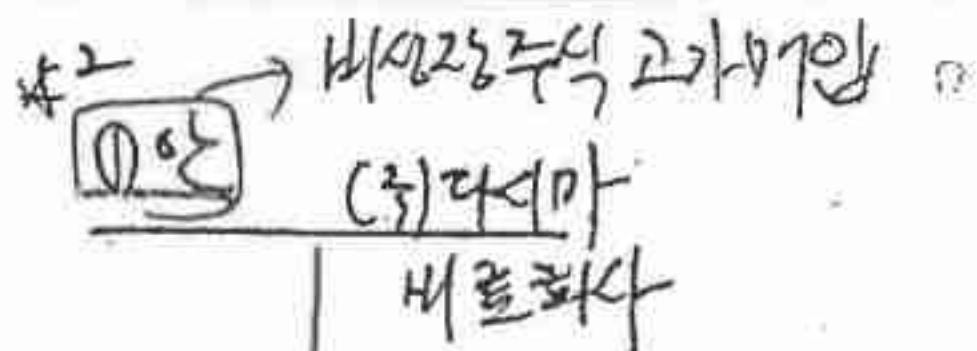 *2
①안 → 비상장주식 고가매입
(주)다시마
비료회사